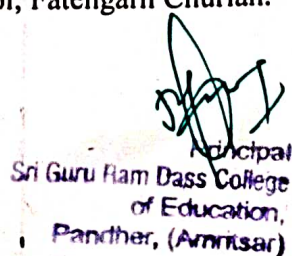 ol, Fatehgarh Churian.
Principal
Sri Guru Ram Dass College
of Education,
Pandher, (Amritsar)